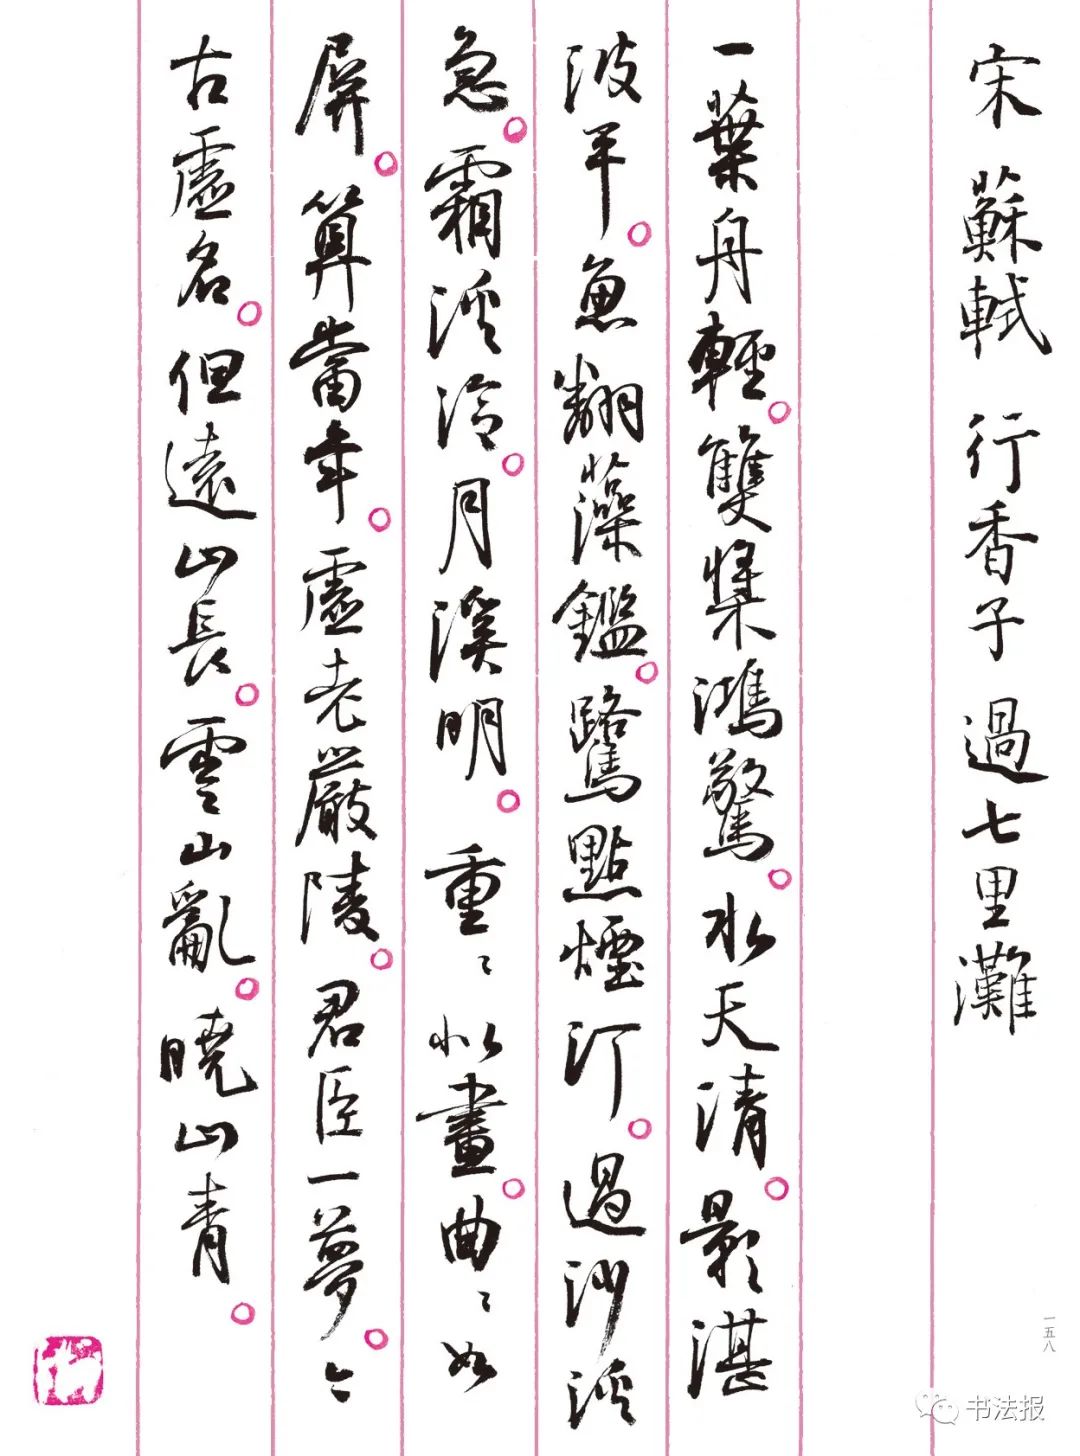 宋 蘇軾 行香子 過七里灘
一葉舟輕。雙槳鴻驚。水天清。影湛
波平。魚翻藻鑑。鷺點煙汀。過沙溪
急。霜溪冷。月溪明。重〻似畫。曲〻如
屏。算當年。虛老嚴陵。君臣一夢。今
古虛名。但遠山長。雲山亂。曉山青。
一五八
书法报